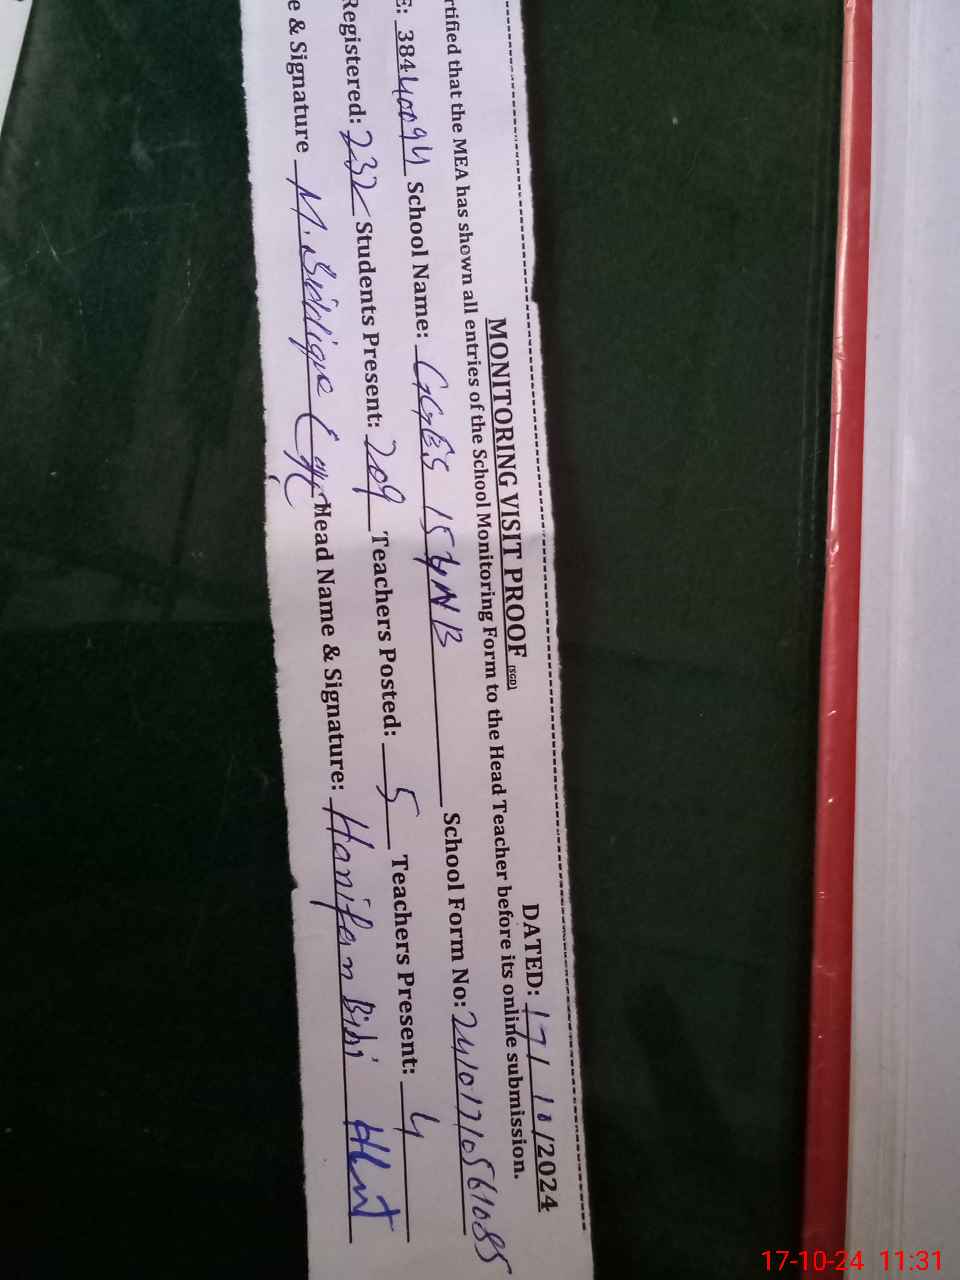 MONITORING VISIT PROOF (SGD) DATED: 17/10/2024
rtified that the MEA has shown all entries of the School Monitoring Form to the Head Teacher before its online submission.
E: 38440094 School Name: GGES 154NB School Form No: 24101710561085
Registered: 232 Students Present: 209 Teachers Posted: 5 Teachers Present: 4
e & Signature M. Siddique Head Name & Signature: Hanifan Bibi
17-10-24 11:31